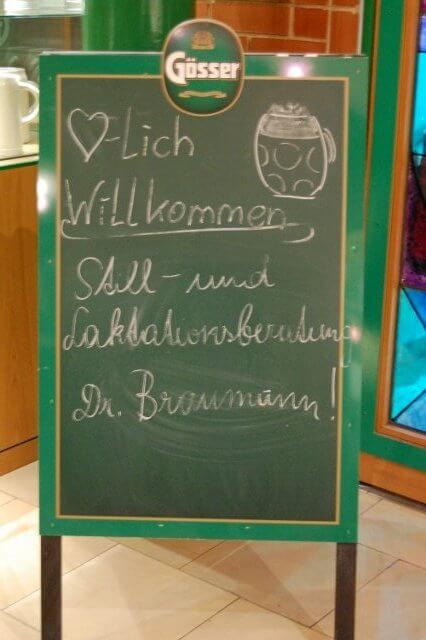 Gösser
♡-lich
Willkommen
Still- und
Laktationsberatung
Dr. Braumann!